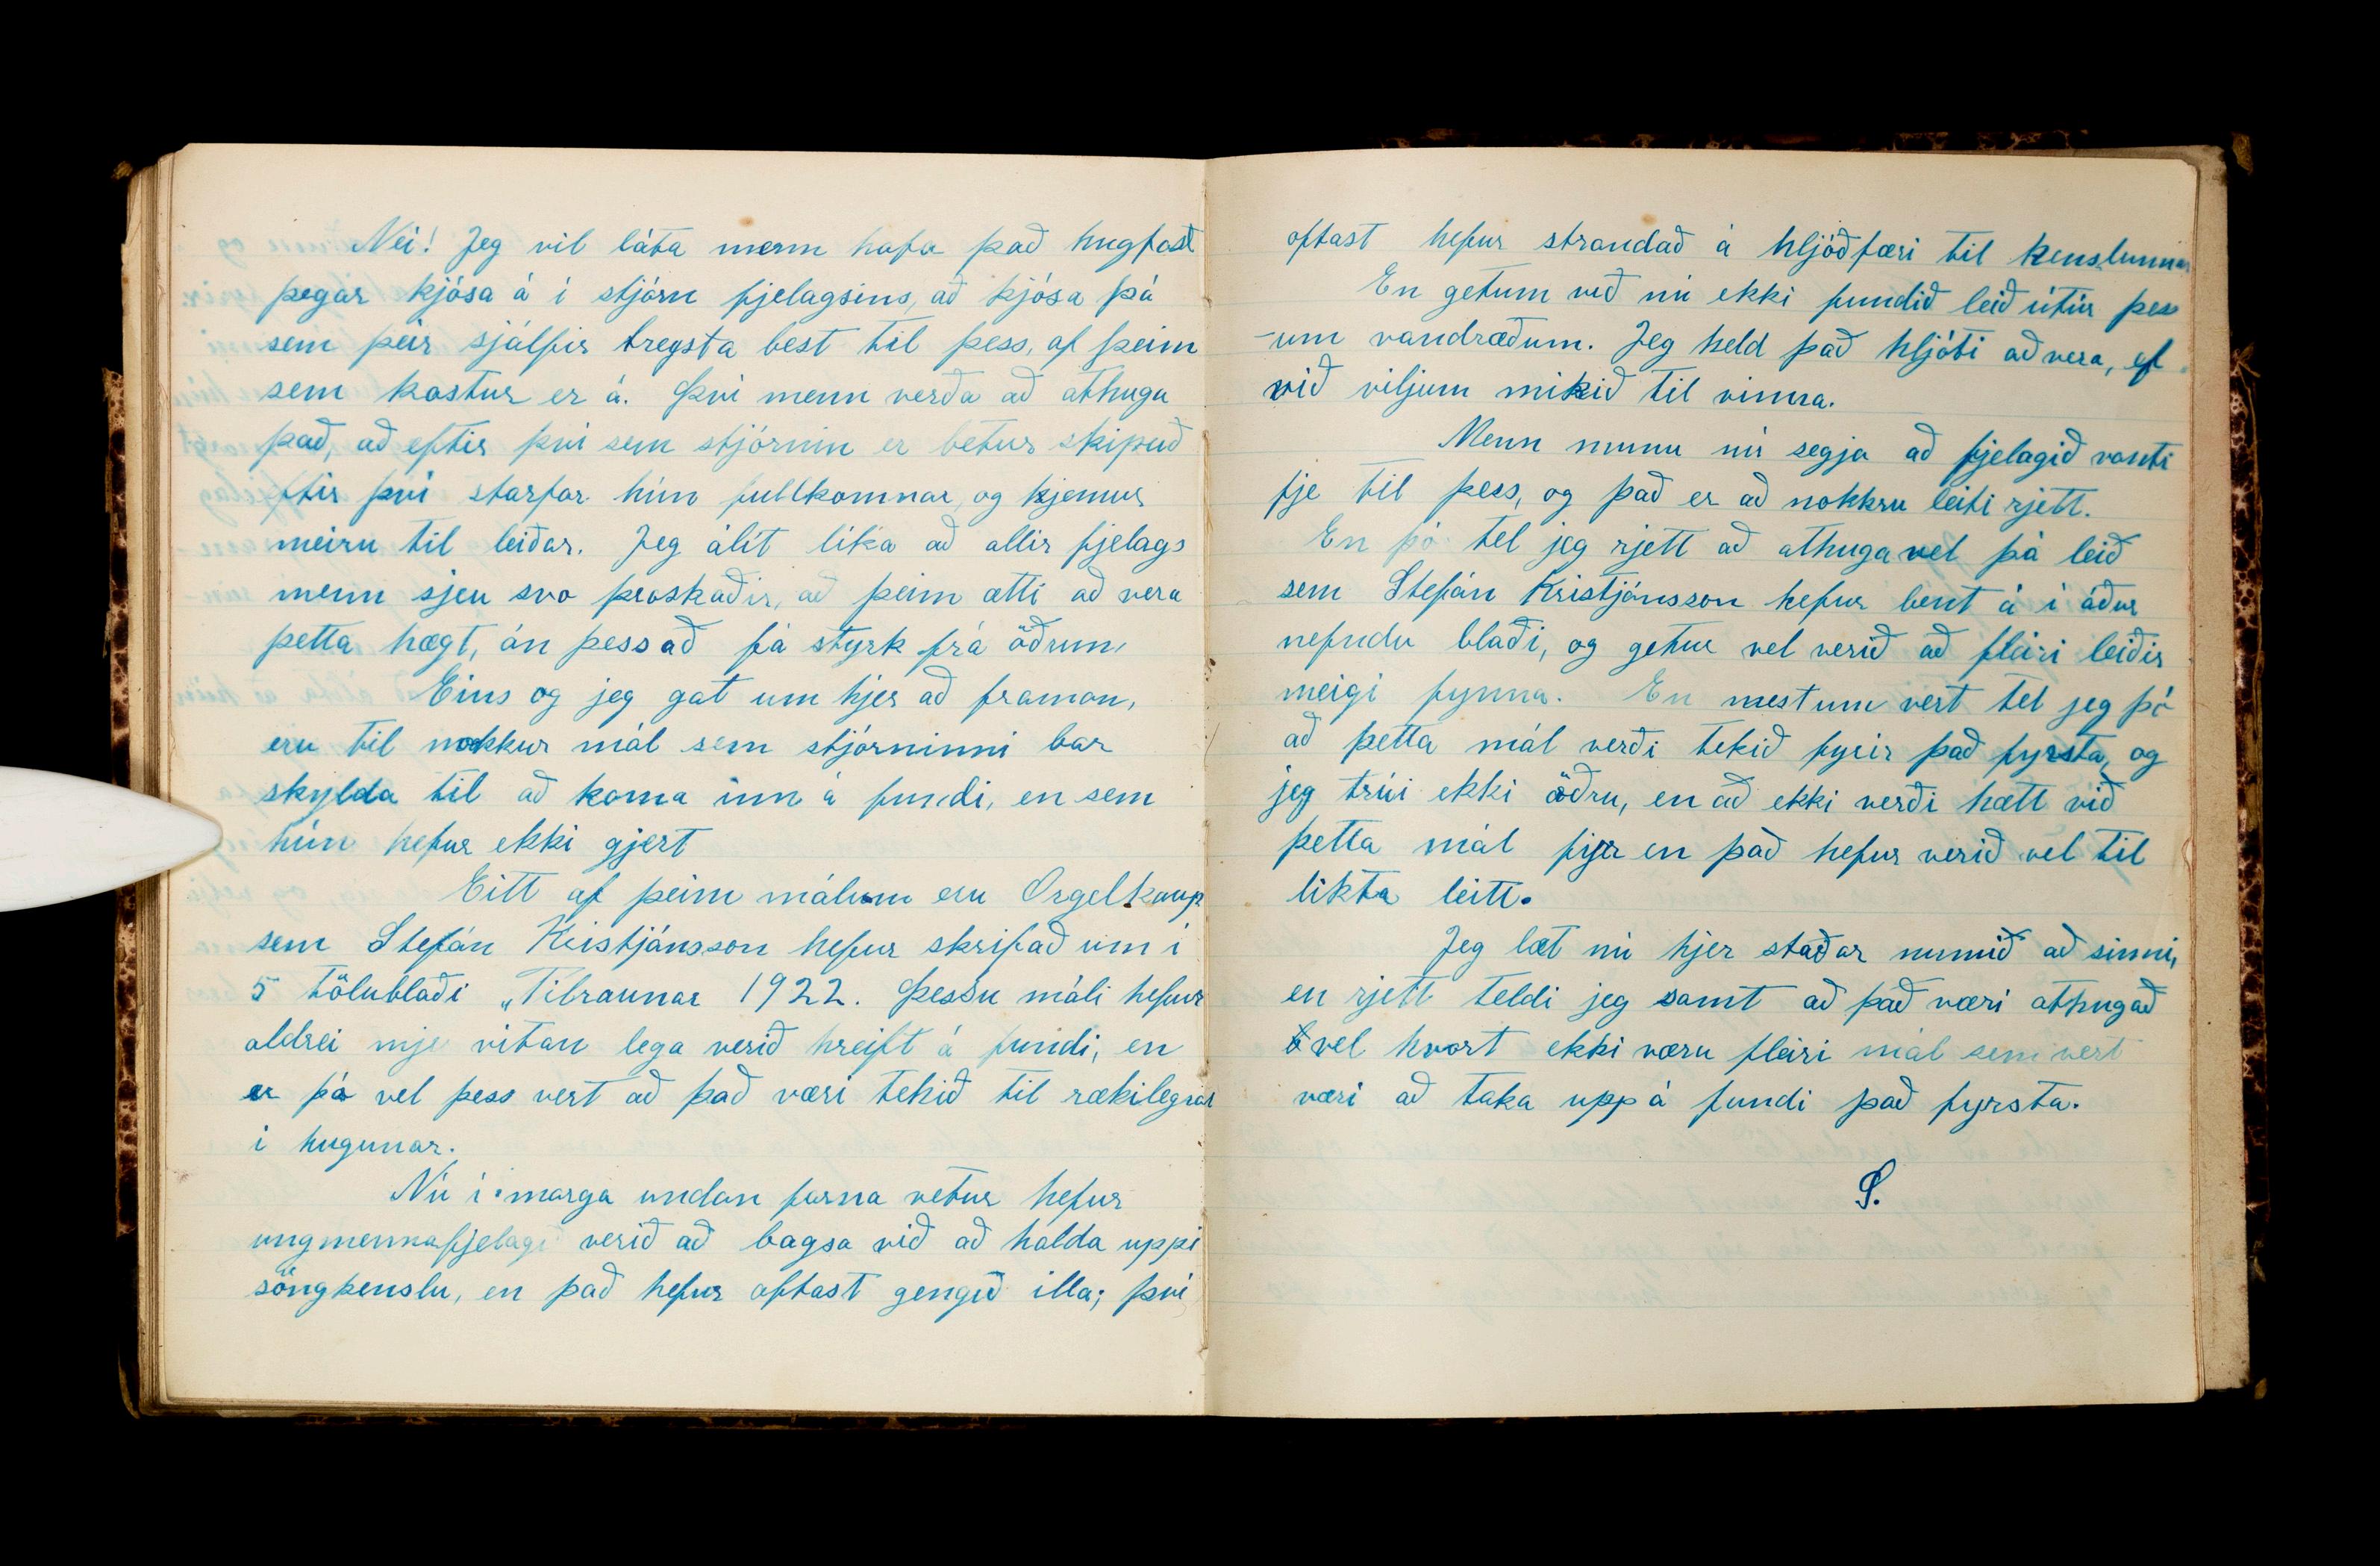 Nei! Jeg vil láta menn hafa það hugfast
þegar kjósa á í stjórn fjelagsins, að kjósa þá
sem þeir sjálfir treysta best til þess, af þeim
sem kostur er á. Því menn verða að athuga
það, að eftir því sem stjórnin er betur skipuð
ftir því starfar hún fullkomnar, og kjemur
meiru til leiðar. Jeg álít líka að allir fjelags
menn sjeu svo þroskaðir, að þeim ætti að vera
þetta hægt, án þess að fá styrk frá öðrum,
Eins og jeg gat um hjer að framan,
eru til nokkur mál sem stjórninni bar
skylda til að koma inn á fundi, en sem
hún hefur ekki gjert
Eitt af þeim málum eru Orgelkaup
sem Stefán Kristjánsson hefur skrifað um í
5 tölublaði „Tilraunar 1922. Þessu máli hefur
aldrei mje vitan lega verið hreift á fundi, en
er þó vel þess vert að það væri tekið til rækilegrar
í hugunar.
Nú í marga undan farna vetur hefur
ungmennafjelagi verið að bagsa við að halda uppi
söngkenslu, en það hefur oftast gengið illa; því
oftast hefur strandað á hljóðfæri til kenslunnar
En getum við nú ekki fundið leið útúr þess
-um vandræðum. Jeg held það hljóti að vera, ef
við viljum mikið til vinna.
Menn munu nú segja að fjelagið vanti
fje til þess, og það er að nokkru leiti rjett.
En þó tel jeg rjett að athuga vel þá leið
sem Stefán Kristjánsson hefur bent á í áður
nefndu blaði, og getur vel verið að fleiri leiðir
meigi fynna. En mest um vert tel jeg þó
að þetta mál verði tekið fyrir það fyrsta, og
jeg trúi ekki öðru, en að ekki verði hætt við
þetta mál fyr en það hefur verið vel til
likta leitt.
Jeg læt nú hjer staðar numið að sinni,
en rjett teldi jeg samt að það væri athugað
vel hvort ekki væru fleiri mál sem vert
væri að taka upp á fundi það fyrsta.
S.